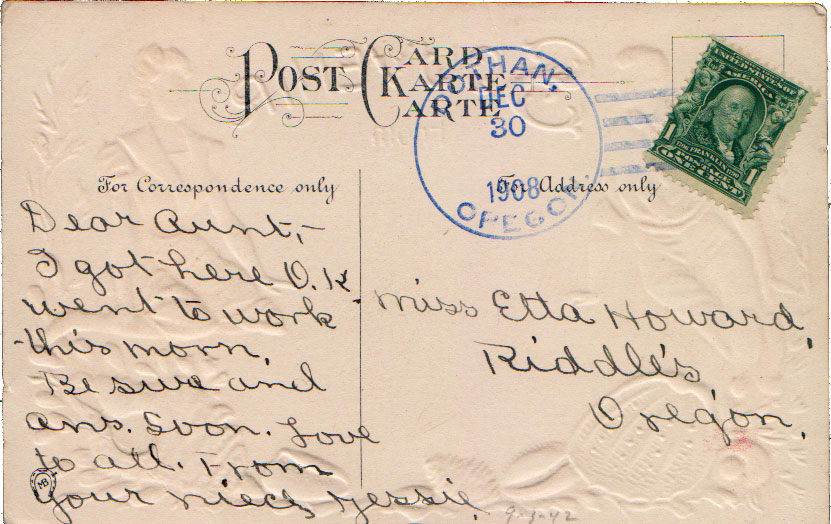 POST CARD
KARTE
CARTE
DOTHAN,
DEC
30
1908
OREGON.
UNITED STATES OF AMERICA
1706 FRANKLIN 1790
1 ONE CENT 1
For Correspondence only
For Address only
Dear Aunt,-
I got here O.K
went to work
this morn.
Be sure and
ans. Soon. Love
to all. From
your niece, Jessie.
Miss Etta Howard,
Riddle's
Oregon.
9-3-42